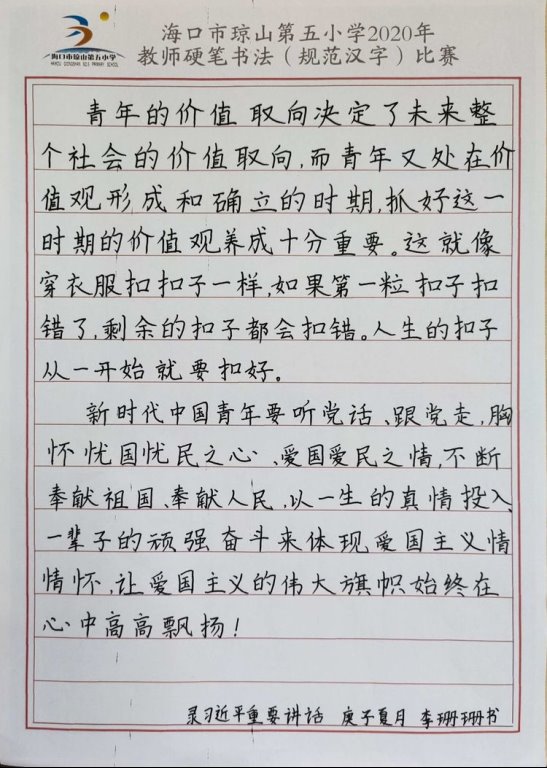 海口市琼山第五小学2020年
教师硬笔书法（规范汉字）比赛
海口市琼山第五小学
青年的价值取向决定了未来整
个社会的价值取向,而青年又处在价
值观形成和确立的时期,抓好这一
时期的价值观养成十分重要。这就像
穿衣服扣扣子一样,如果第一粒扣子扣
错了,剩余的扣子都会扣错。人生的扣子
从一开始就要扣好。
新时代中国青年要听党话、跟党走,胸
怀忧国忧民之心、爱国爱民之情,不断
奉献祖国、奉献人民,以一生的真情投入、
一辈子的顽强奋斗来体现爱国主义情
情怀,让爱国主义的伟大旗帜始终在
心中高高飘扬!
录习近平重要讲话 庚子夏月 李珊珊书